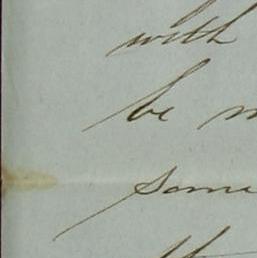 with
be
some